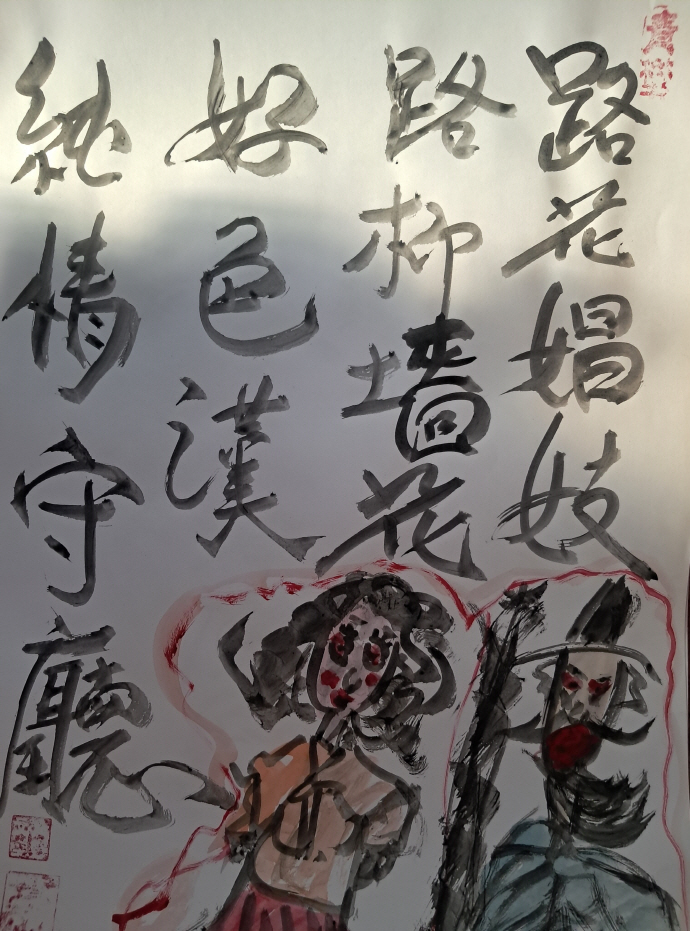 路花娼妓
路柳墙花
好色漢
純情守廳